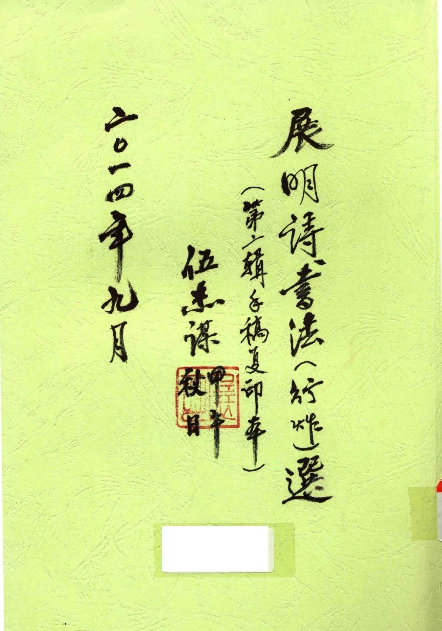 展明詩書法（行草）選
（第二輯手稿复印本）
伍杰谋
甲午
秋日
二〇一四年九月